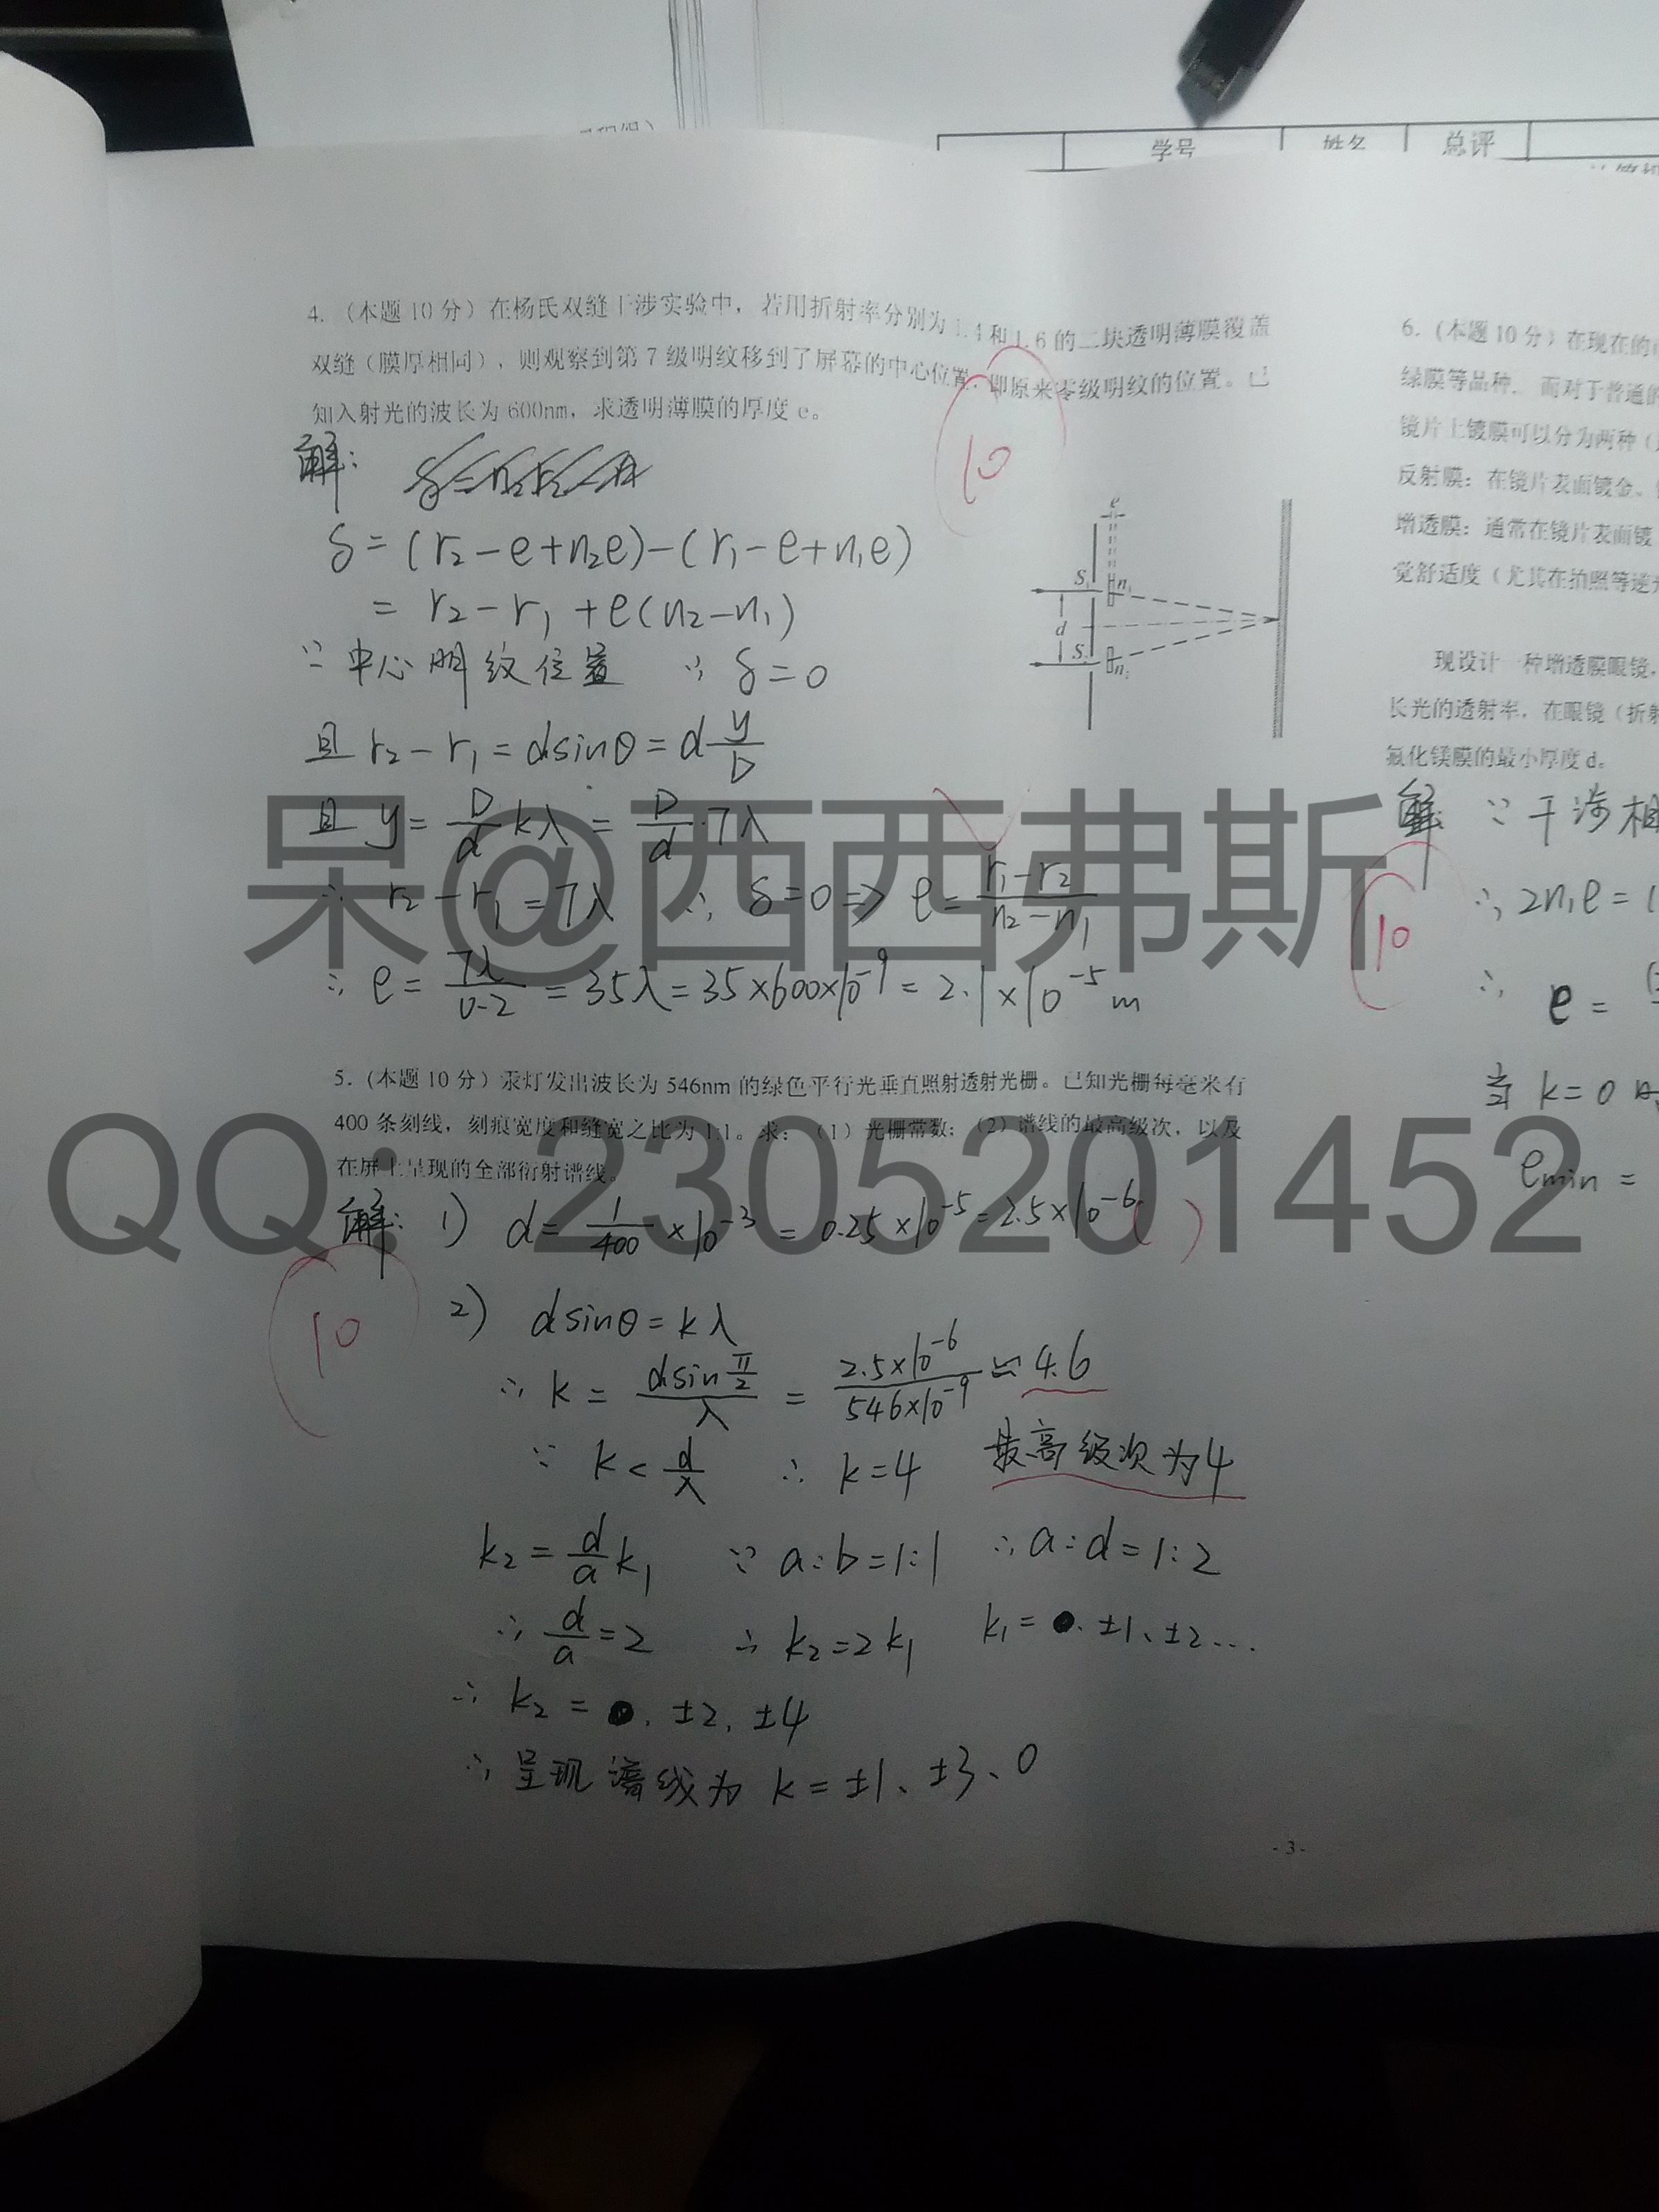 学号 姓名 总评
4. （本题 10 分）在杨氏双缝干涉实验中，若用折射率分别为 1.4 和 1.6 的二块透明薄膜覆盖
双缝（膜厚相同），则观察到第 7 级明纹移到了屏幕的中心位置，即原来零级明纹的位置。已
知入射光的波长为 600nm，求透明薄膜的厚度 e。
10
解：
δ = (r₂ - e + n₂e) - (r₁ - e + n₁e)
= r₂ - r₁ + e(n₂ - n₁)
∵ 中心明纹位置 ∴ δ = 0
且 r₂ - r₁ = dsinθ = d y/D
且 y = D/d kλ = D/d · 7λ
∴ r₂ - r₁ = 7λ ∴ δ = 0 => e = (r₁ - r₂)/(n₂ - n₁)
∴ e = 7λ/0.2 = 35λ = 35×600×10⁻⁹ = 2.1×10⁻⁵ m
e
S₁ n₁
d
S n₂
5. (本题 10 分) 汞灯发出波长为 546nm 的绿色平行光垂直照射透射光栅。已知光栅每毫米有
400 条刻线，刻痕宽度和缝宽之比为 1:1。求：（1）光栅常数；（2）谱线的最高级次，以及
在屏上呈现的全部衍射谱线。
解：1) d = 1/400 × 10⁻³ = 0.25×10⁻⁵ = 2.5×10⁻⁶
10
2) dsinθ = kλ
∴ k = dsin π/2 / λ = 2.5×10⁻⁶ / 546×10⁻⁹ ≈ 4.6
∵ k < d/λ ∴ k = 4 最高级次为4
k₂ = d/a k₁ ∵ a:b = 1:1 ∴ a:d = 1:2
∴ d/a = 2 ∴ k₂ = 2k₁ k₁ = ±1、±2...
∴ k₂ = ±2、±4
∴ 呈现谱线为 k = ±1、±3、0
- 3 -
6.（本题 10 分）在现在的
绿膜等品种.。而对于普通的
镜片上镀膜可以分为两种（
反射膜：在镜片表面镀金、
增透膜：通常在镜片表面镀
觉舒适度（尤其在拍照等逆光
现设计一种增透膜眼镜，
长光的透射率，在眼镜（折射
氟化镁膜的最小厚度 d。
解 ∵ 干涉相
∴ 2n₁e = (
10
∴ e =
当 k = 0 时
emin =
呆@西西弗斯
QQ：2305201452